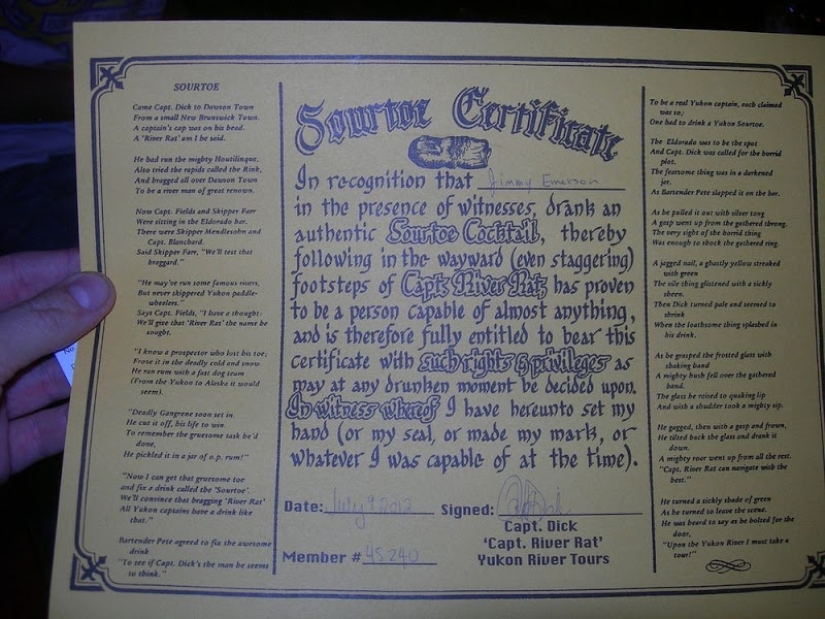 SOURTOE
Came Capt. Dick to Dawson Town
From a small New Brunswick Town.
A captain's cap was on his head.
A 'River Rat' am I he said.
He had run the mighty Hootilinque,
Also tried the rapids called the Rink,
And bragged all over Dawson Town
To be a river man of great renown.
Now Capt. Fields and Skipper Farr
Were sitting in the Eldorado bar.
There were Skipper Mendlesohn and
Capt. Blanchard.
Said Skipper Farr, "We'll test that
braggard."
"He may've run some famous rivers,
But never skippered Yukon paddle-
wheelers."
Says Capt. Fields, "I have a thought:
We'll give that 'River Rat' the name he
sought.
"I know a prospector who lost his toe;
Froze it in the deadly cold and snow
He ran rum with a fast dog team
(From the Yukon to Alaska it would
seem).
"Deadly Gangrene soon set in.
He cut it off, his life to win.
To remember the gruesome task he'd
done,
He pickled it in a jar of o.p. rum!"
"Now I can get that gruesome toe
and fix a drink called the 'Sourtoe'.
We'll convince that bragging 'River Rat'
All Yukon captains have a drink like
that."
Bartender Pete agreed to fix the awesome
drink
"To see if Capt. Dick's the man he seems
to think."
Sourtoe Certificate
In recognition that Jimmy Emerson
in the presence of witnesses, drank an
authentic Sourtoe Cocktail, thereby
following in the wayward (even staggering)
footsteps of Capt. River Rat, has proven
to be a person capable of almost anything,
and is therefore fully entitled to bear this
certificate with such rights & privileges as
may at any drunken moment be decided upon.
In witness whereof I have hereunto set my
hand (or my seal, or made my mark, or
whatever I was capable of at the time).
Date: July 9 2012 Signed:
Capt. Dick
Member # 45 240
'Capt. River Rat'
Yukon River Tours
To be a real Yukon captain, each claimed
was so;
One had to drink a Yukon Sourtoe.
The Eldorado was to be the spot
And Capt. Dick was called for the horrid
plot.
The fearsome thing was in a darkened
jar.
As Bartender Pete slapped it on the bar.
As he pulled it out with silver tong
A gasp went up from the gathered throng.
The very sight of the horrid thing
Was enough to shock the gathered ring.
A jagged nail, a ghastly yellow streaked
with green
The vile thing glistened with a sickly
sheen.
Then Dick turned pale and seemed to
shrink
When the loathsome thing splashed in
his drink.
As he grasped the frosted glass with
shaking hand
A mighty hush fell over the gathered
band.
The glass he raised to quaking lip
And with a shudder took a mighty sip.
He gagged, then with a gasp and frown,
He tilted back the glass and drank it
down.
A mighty roar went up from all the rest.
"Capt. River Rat can navigate with the
best."
He turned a sickly shade of green
As he turned to leave the scene.
He was heard to say as he bolted for the
door,
"Upon the Yukon River I must take a
tour!"